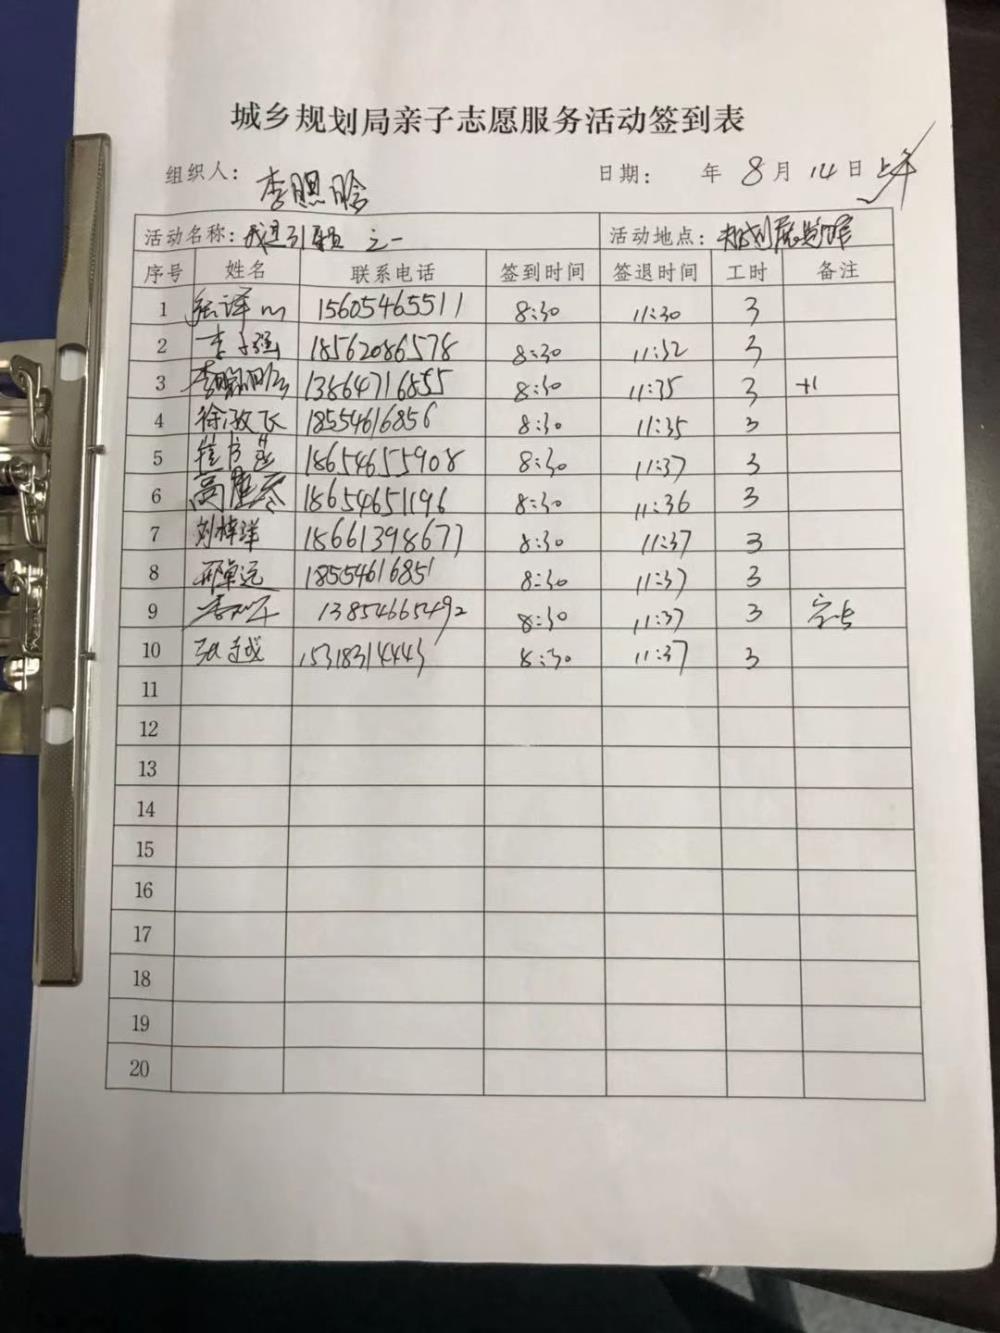 城乡规划局亲子志愿服务活动签到表
组织人: 李照晗 日期: 年 8月 14日 上午
活动名称: 我是引导员 之一 活动地点: 规划展览馆
序号 姓名 联系电话 签到时间 签退时间 工时 备注
1 15605465511 8:30 11:30 3
2 李子强 18562086578 8:30 11:32 3
3 李照晗 13864716855 8:30 11:35 3 +1
4 徐敬飞 18554616856 8:30 11:35 3
5 崔书菡 18654655908 8:30 11:37 3
6 18654651196 8:30 11:36 3
7 刘梓洋 18661398677 8:30 11:37 3
8 邢卓远 18554616851 8:30 11:37 3
9 13854665492 8:30 11:37 3
10 张越 15318314443 8:30 11:37 3
11
12
13
14
15
16
17
18
19
20